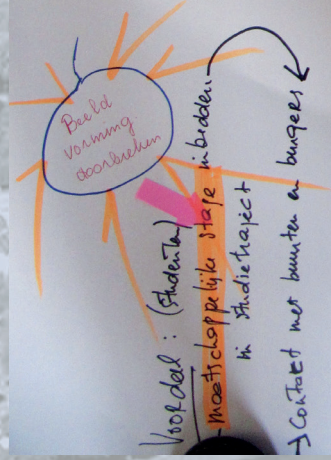 Beeld
vorming
doorbreken
Voordeel : (studenten)
- maatschappelijke stage inbedden
in studietraject
→ Contact met buurten en burgers